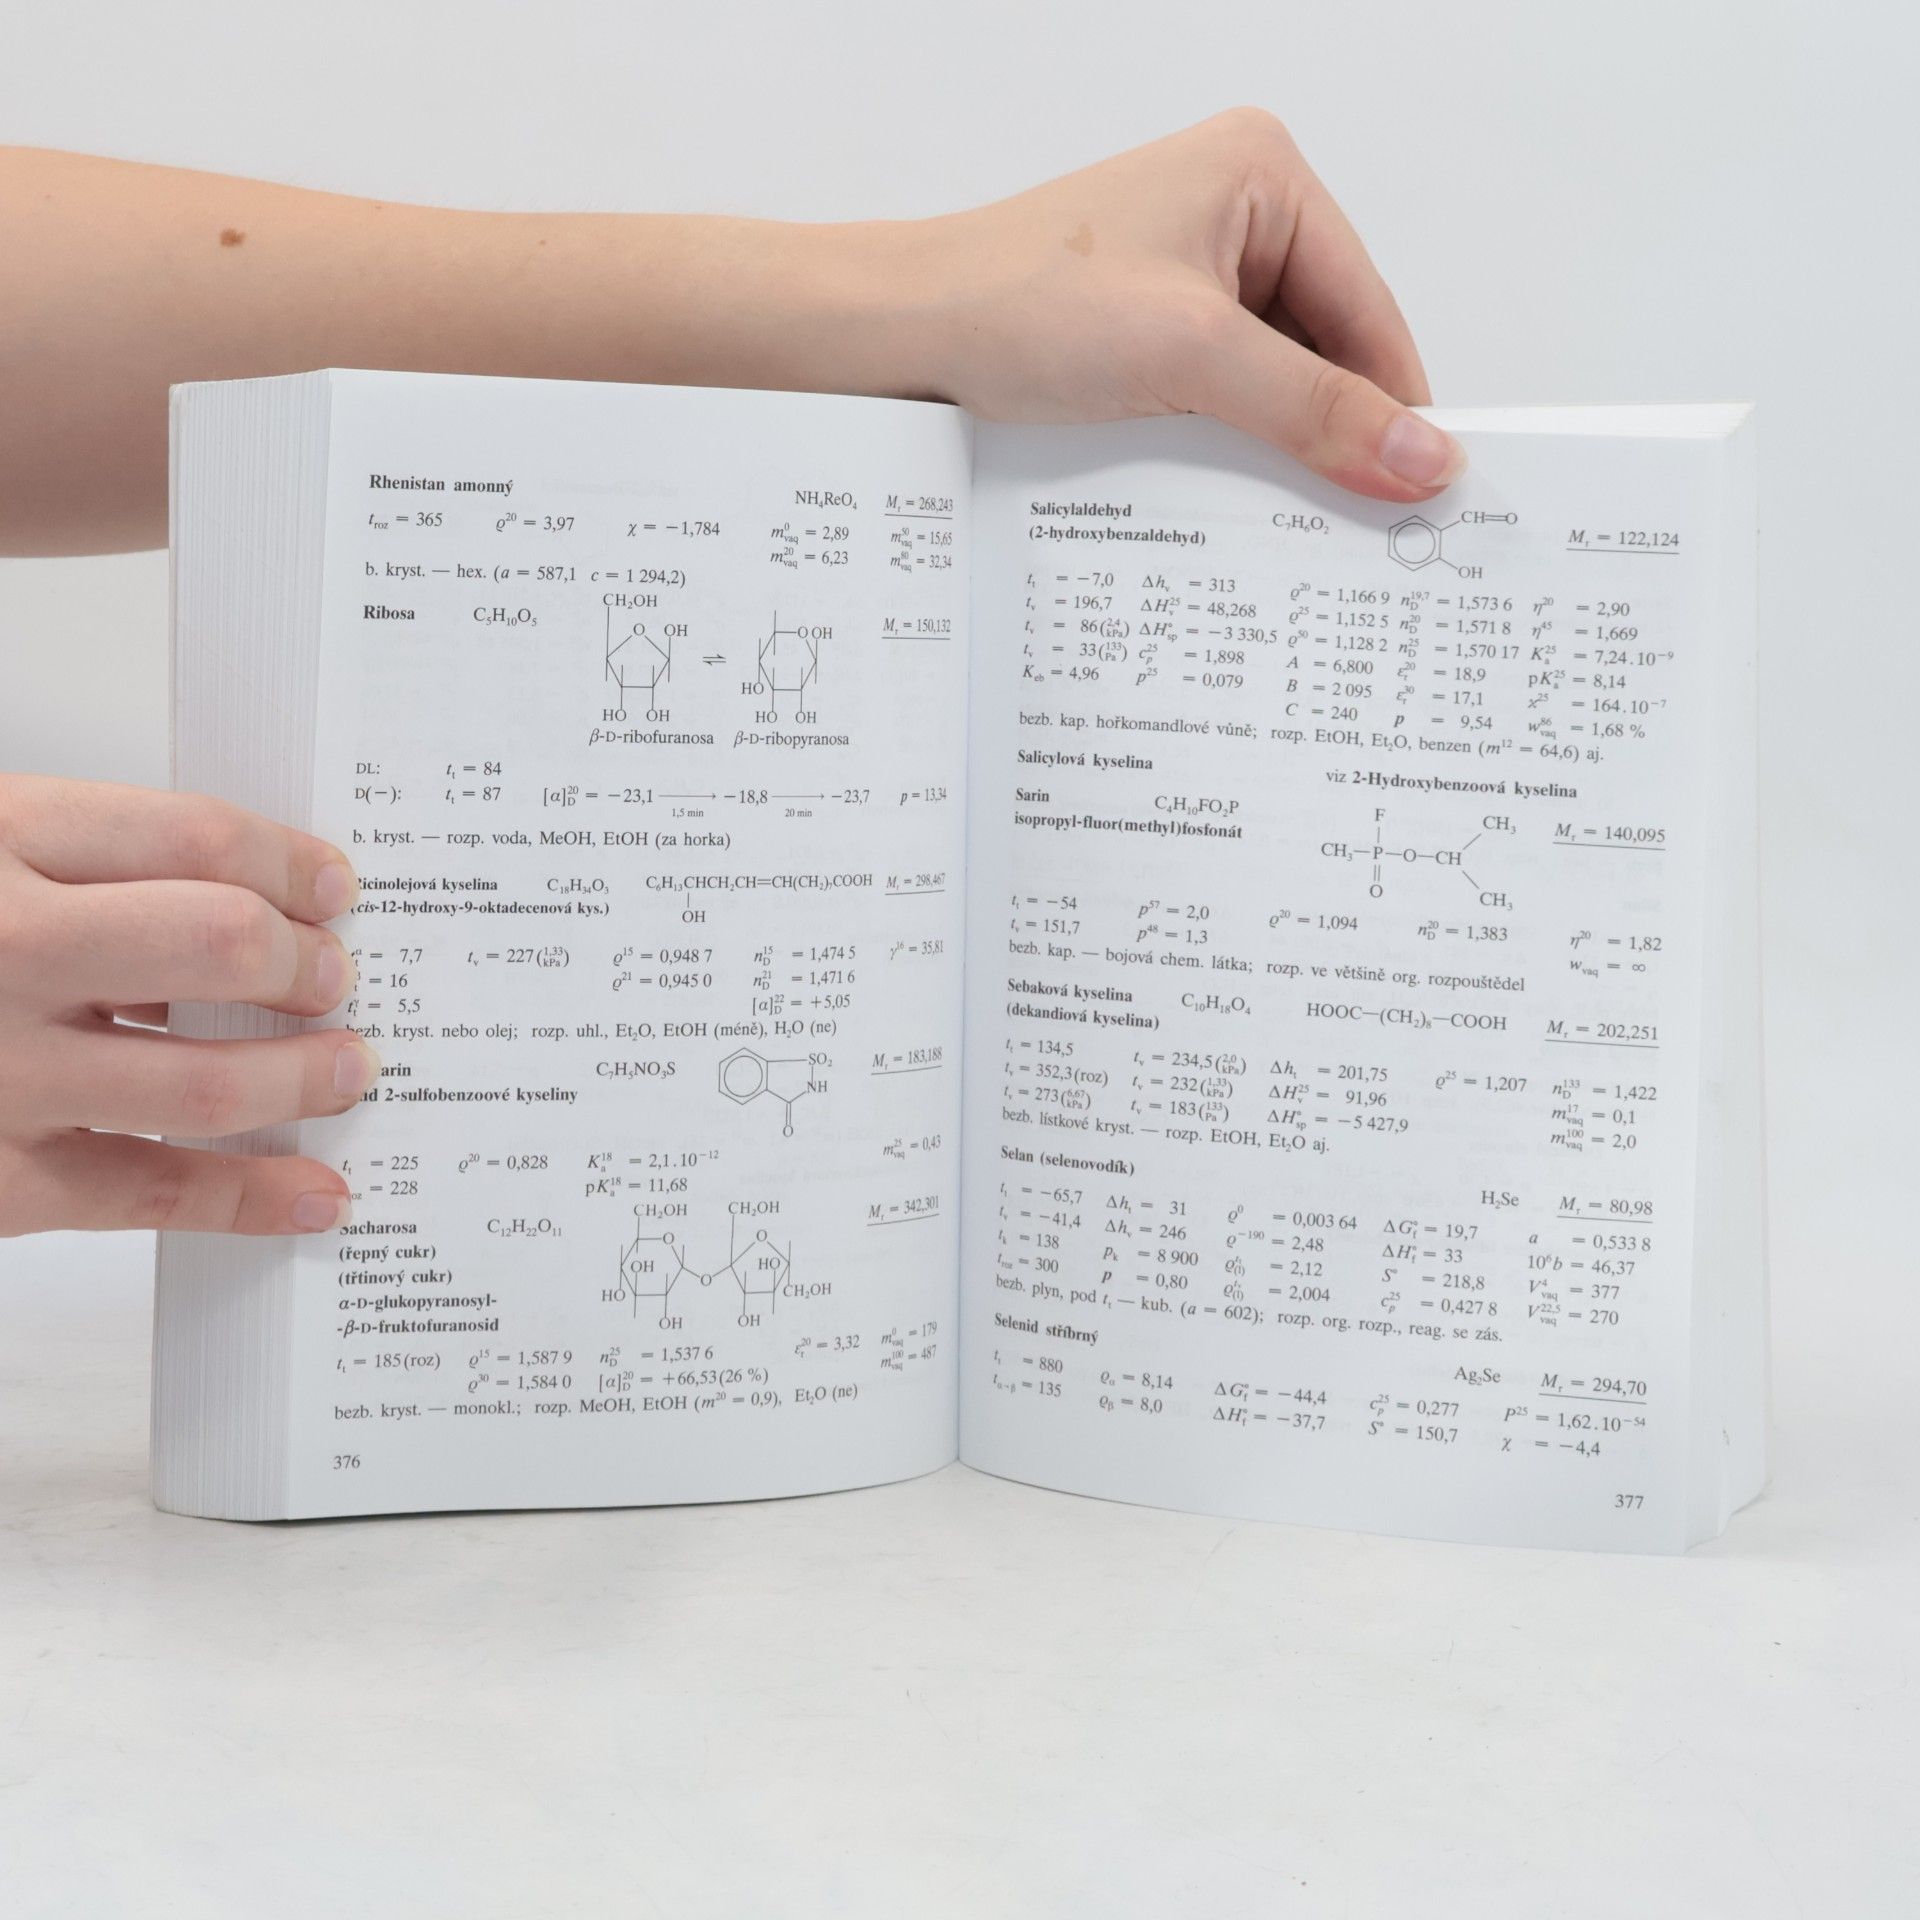 Rhenistan amonný NH₄ReO₄ Mᵣ = 268,243
t_roz = 365 ϱ²⁰ = 3,97 χ = −1,784 m⁰_vaq = 2,89 m⁵⁰_vaq = 15,65
m²⁰_vaq = 6,23 m⁸⁰_vaq = 32,34
b. kryst. — hex. (a = 587,1 c = 1 294,2)
Ribosa C₅H₁₀O₅ Mᵣ = 150,132
CH₂OH
O OH O OH
HO
HO OH HO OH
β-D-ribofuranosa β-D-ribopyranosa
DL: tₜ = 84
D(−): tₜ = 87 [α]²⁰_D = −23,1 → −18,8 → −23,7 p = 13,34
1,5 min 20 min
b. kryst. — rozp. voda, MeOH, EtOH (za horka)
icinolejová kyselina C₁₈H₃₄O₃ C₆H₁₃CHCH₂CH=CH(CH₂)₇COOH Mᵣ = 298,467
(cis-12-hydroxy-9-oktadecenová kys.) OH
= 7,7 tᵥ = 227(1,33 kPa) ϱ¹⁵ = 0,948 7 n¹⁵_D = 1,474 5 γ¹⁶ = 35,81
= 16 ϱ²¹ = 0,945 0 n²¹_D = 1,471 6
= 5,5 [α]²²_D = +5,05
bezb. kryst. nebo olej; rozp. uhl., Et₂O, EtOH (méně), H₂O (ne)
arin C₇H₅NO₃S SO₂ Mᵣ = 183,188
2-sulfobenzoové kyseliny NH
O
m²⁵_vaq = 0,43
tₜ = 225 ϱ²⁰ = 0,828 K¹⁸ₐ = 2,1.10⁻¹²
= 228 pK¹⁸ₐ = 11,68
Sacharosa C₁₂H₂₂O₁₁ CH₂OH CH₂OH Mᵣ = 342,301
(řepný cukr) O O
(třtinový cukr) OH HO
α-D-glukopyranosyl- HO O CH₂OH
-β-D-fruktofuranosid OH OH
tₜ = 185(roz) ϱ¹⁵ = 1,587 9 n²⁵_D = 1,537 6 ε²⁰ᵣ = 3,32 m⁰_vaq = 179
ϱ³⁰ = 1,584 0 [α]²⁰_D = +66,53(26 %) m¹⁰⁰_vaq = 487
bezb. kryst. — monokl.; rozp. MeOH, EtOH (m²⁰ = 0,9), Et₂O (ne)
376
Salicylaldehyd C₇H₆O₂ CH=O
(2-hydroxybenzaldehyd) OH Mᵣ = 122,124
tₜ = −7,0 Δhᵥ = 313 ϱ²⁰ = 1,166 9 n¹⁹,⁷_D = 1,573 6 η²⁰ = 2,90
tᵥ = 196,7 ΔH²⁵ᵥ = 48,268 ϱ²⁵ = 1,152 5 n²⁰_D = 1,571 8 η⁴⁵ = 1,669
tᵥ = 86(2,4 kPa) ΔH°_sp = −3 330,5 ϱ⁵⁰ = 1,128 2 n²⁵_D = 1,570 17 K²⁵ₐ = 7,24.10⁻⁹
tᵥ = 33(133 Pa) c²⁵ₚ = 1,898 A = 6,800 ε²⁰ᵣ = 18,9 pK²⁵ₐ = 8,14
K_eb = 4,96 p²⁵ = 0,079 B = 2 095 ε³⁰ᵣ = 17,1 ϰ²⁵ = 164.10⁻⁷
C = 240 p = 9,54 w⁸⁶_vaq = 1,68 %
bezb. kap. hořkomandlové vůně; rozp. EtOH, Et₂O, benzen (m¹² = 64,6) aj.
Salicylová kyselina viz 2-Hydroxybenzoová kyselina
Sarin C₄H₁₀FO₂P Mᵣ = 140,095
isopropyl-fluor(methyl)fosfonát
F CH₃
CH₃—P—O—CH
O CH₃
tₜ = −54 p⁵⁷ = 2,0 ϱ²⁰ = 1,094 n²⁰_D = 1,383 η²⁰ = 1,82
tᵥ = 151,7 p⁴⁸ = 1,3 w_vaq = ∞
bezb. kap. — bojová chem. látka; rozp. ve většině org. rozpouštědel
Sebaková kyselina C₁₀H₁₈O₄ HOOC—(CH₂)₈—COOH Mᵣ = 202,251
(dekandiová kyselina)
tₜ = 134,5 tᵥ = 234,5(2,0 kPa) Δhₜ = 201,75 ϱ²⁵ = 1,207 n¹³³_D = 1,422
tᵥ = 352,3(roz) tᵥ = 232(1,33 kPa) ΔH²⁵ᵥ = 91,96 m¹⁷_vaq = 0,1
tᵥ = 273(6,67 kPa) tᵥ = 183(133 Pa) ΔH°_sp = −5 427,9 m¹⁰⁰_vaq = 2,0
bezb. lístkové kryst. — rozp. EtOH, Et₂O aj.
Selan (selenovodík) H₂Se Mᵣ = 80,98
tₜ = −65,7 Δhₜ = 31 ϱ⁰ = 0,003 64 ΔG°_f = 19,7 a = 0,533 8
tᵥ = −41,4 Δhᵥ = 246 ϱ⁻¹⁹⁰ = 2,48 ΔH°_f = 33 10⁶b = 46,37
tₖ = 138 pₖ = 8 900 ϱ_(l) = 2,12 S° = 218,8 V⁴_vaq = 377
t_roz = 300 p = 0,80 ϱ_(l) = 2,004 c²⁵ₚ = 0,427 8 V²²,⁵_vaq = 270
bezb. plyn, pod tₜ — kub. (a = 602); rozp. org. rozp., reag. se zás.
Selenid stříbrný Ag₂Se Mᵣ = 294,70
tₜ = 880 ϱ_α = 8,14 ΔG°_f = −44,4 c²⁵ₚ = 0,277 P²⁵ = 1,62.10⁻⁵⁴
t_α→β = 135 ϱ_β = 8,0 ΔH°_f = −37,7 S° = 150,7 χ = −4,4
377